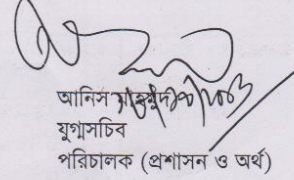 আনিস মাহমুদ
যুগ্মসচিব
পরিচালক (প্রশাসন ও অর্থ)